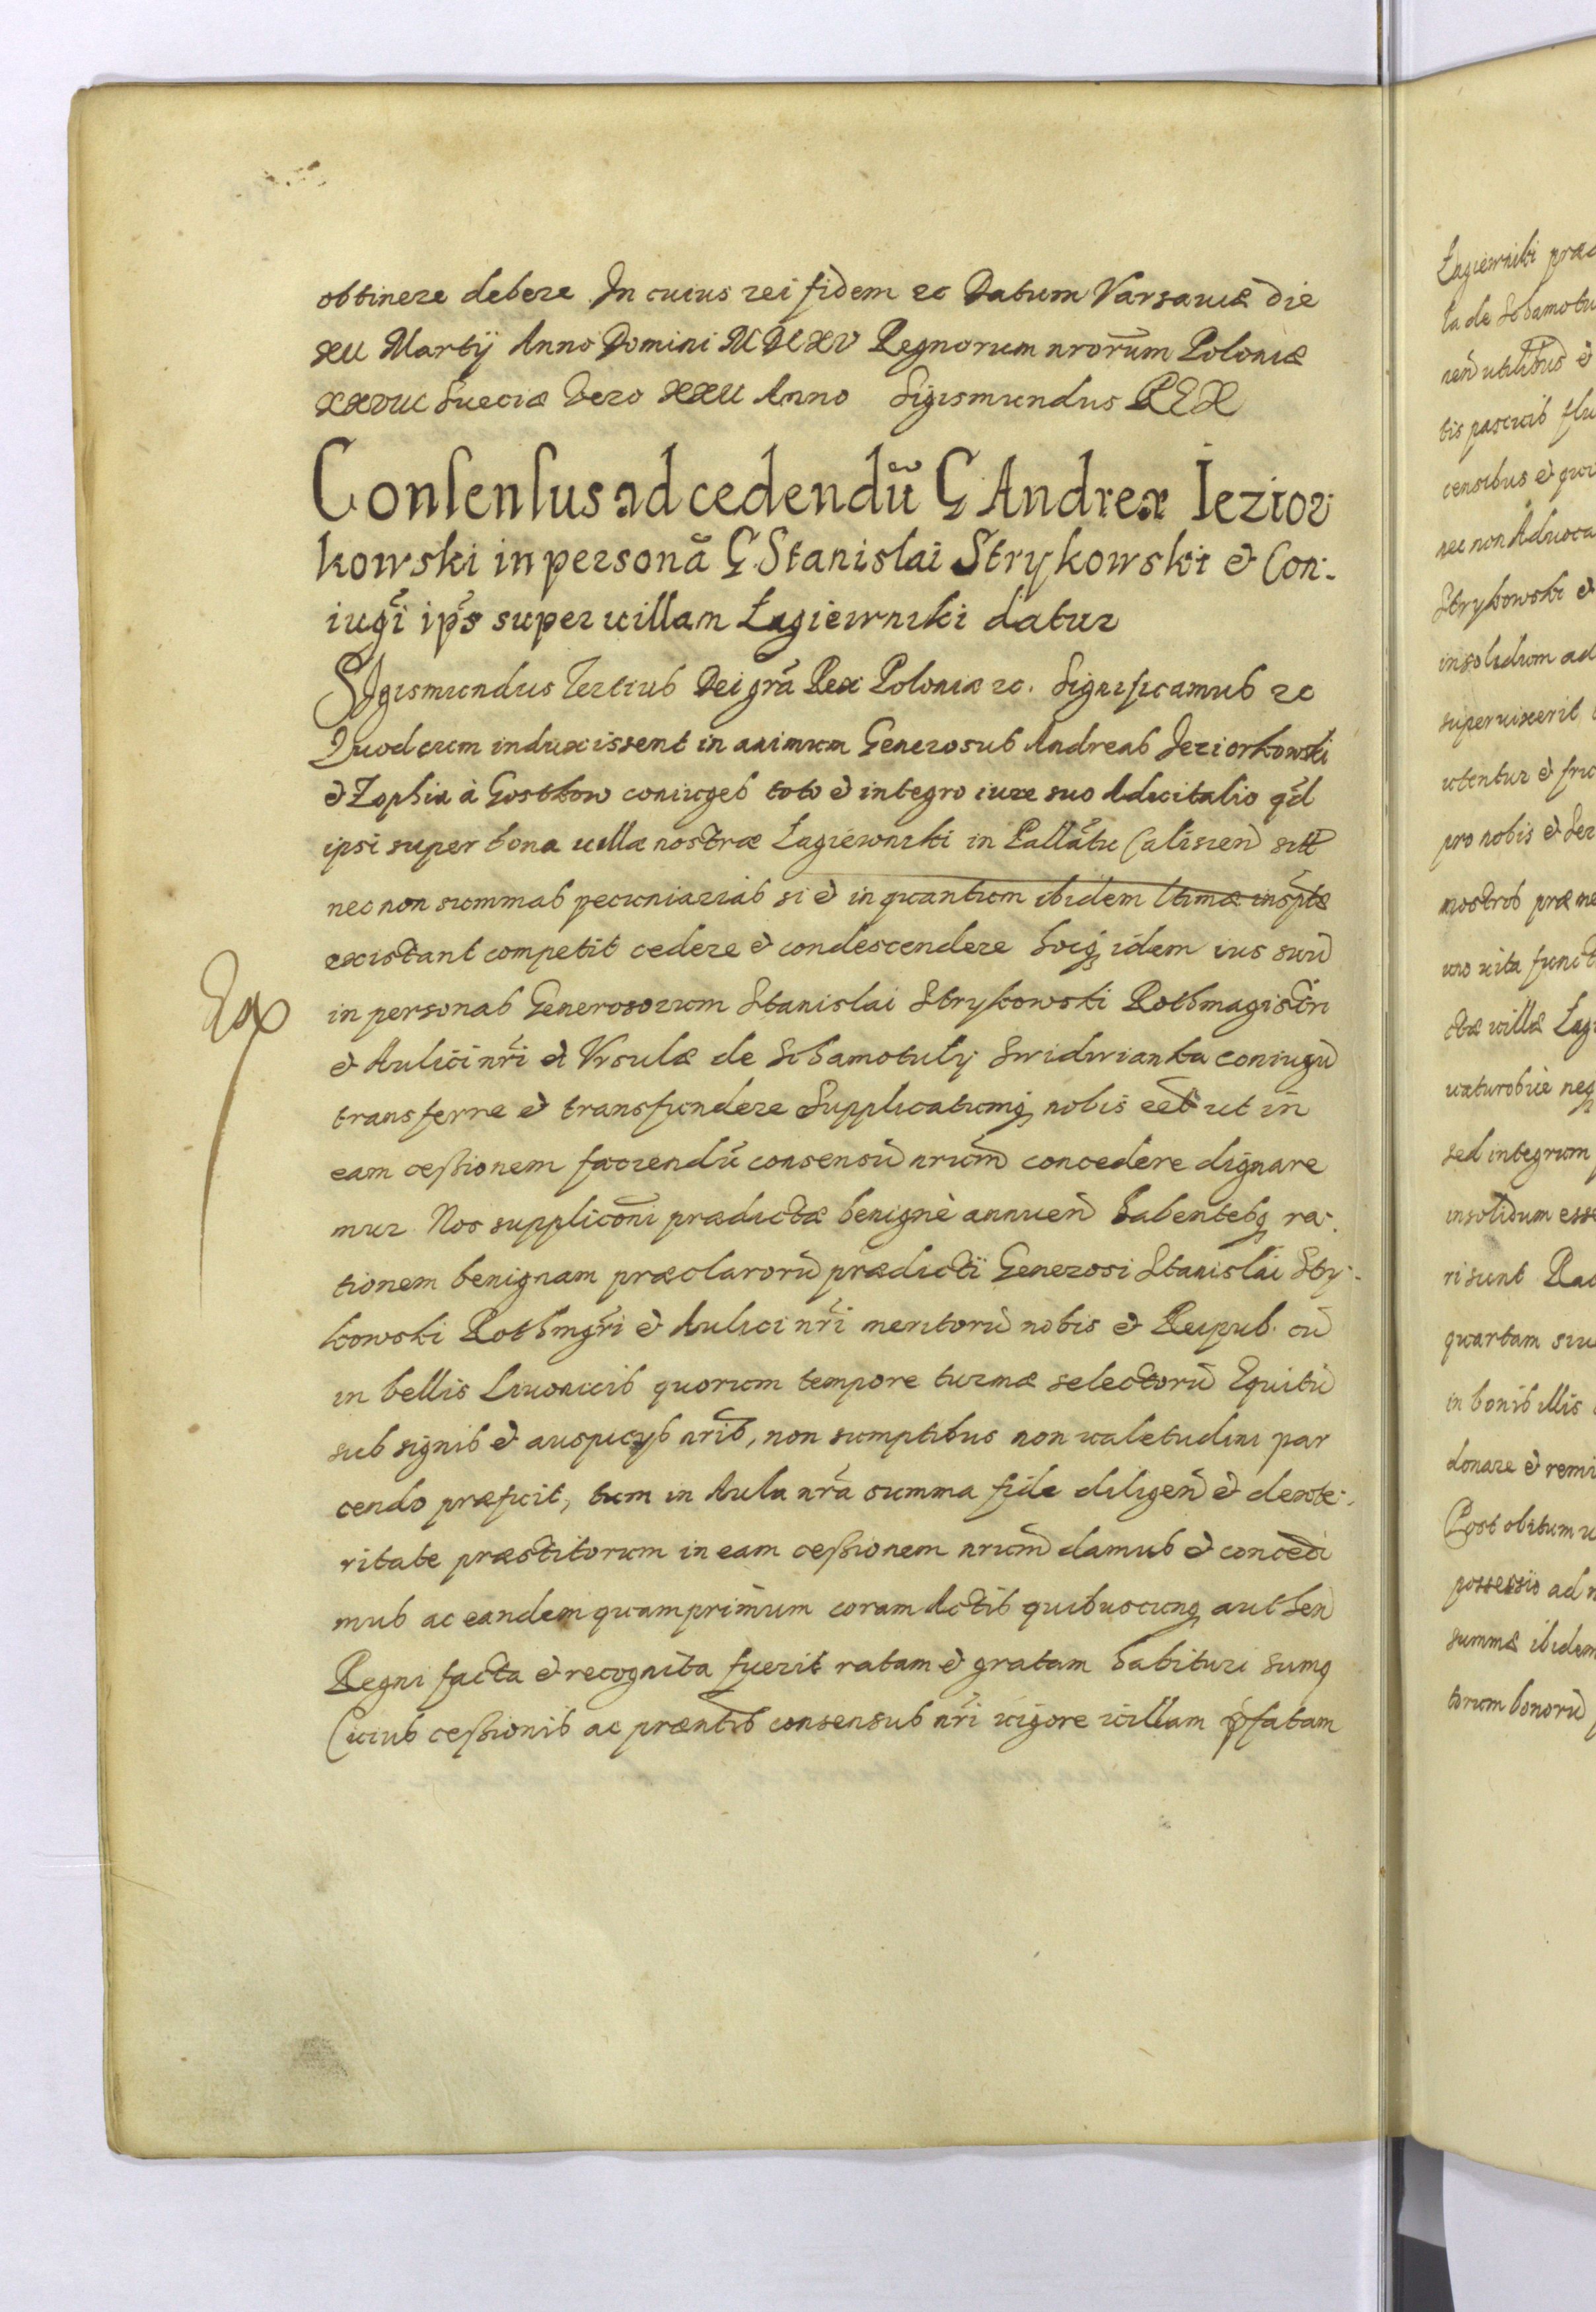 obtinere debere In cuius rei fidem ec Datum Varsauiæ die
XII Martÿ Anno Domini MDCXV Regnorum nrorum Poloniæ
XXVIII Sueciæ vero XXII Anno Sigismundus REX
Consensus ad cedendũ G Andreæ Iezior
kowski in personã G Stanislai Strykowski et Con:
iugĩ ip̃s super uillam Łagiewniki datur
Sigismundus Tertius Dei grã Rex Poloniæ ec. Significamus ec
Quod cum induxissent in animum Generosus Andreas Jeziorkowski
et Zophia à Gostkow coniuges toto et integro iure suo Aduitalio qd̃
ipsi super bona uillæ nostræ Łagiewniki in Pallãtu Calisien̄ sitt
nec non summas pecuniarias si et in quantum ibidem ltimæ insptæ
existant competit cedere et condescendere hocq idem ius suũ
in personas Generosorum Stanislai Strykowski Rothmagistri
et Aulici nr̃i et Vrsulæ de Schamotuly Swidwianka coniugũ
transferre et transfundere Supplicatumq nobis eet ut in
eam ceßionem faciendũ consensũ nrũm concedere dignare
mur Nos supplicõni prædictæ benignè annuen̄ habentesq ra:
tionem benignam præclarorũ prædicti Generosi Stanislai Stry:
kowski Rothmgr̃i et Aulici nr̃i meritorũ nobis et Reipub. cũ
in bellis Liuonicis quorum tempore turmæ selectorũ Equitũ
sub signis et auspicÿs nr̃is, non sumptibus non ualetudini par
cendo præficit, tum in Aula nr̃a summa fide diligen̄ et dexte:
ritate præstitorum in eam ceßionem nrũm damus et concedi
mus ac eandem quamprimum coram Actis quibuscunq authen̄
Regni facta et recognita fuerit ratam et gratam habituri sumq
Cuius ceßionis ac præntis consensus nr̃i uigore uillam p̃fatam
Łagiewniki
la de Schamotu
utilibus et
censibus et
nec non Aduoca
Strykowski et
insolidum ad
superuixerit
utentur et
pro nobis et
uno uita
ctæ uillæ
sed integrum
insolidum esse
ri sunt
quartam
in bonis illis
donare et remi
Post obitum
possessio ad
summæ ibidem
torum bonorũ